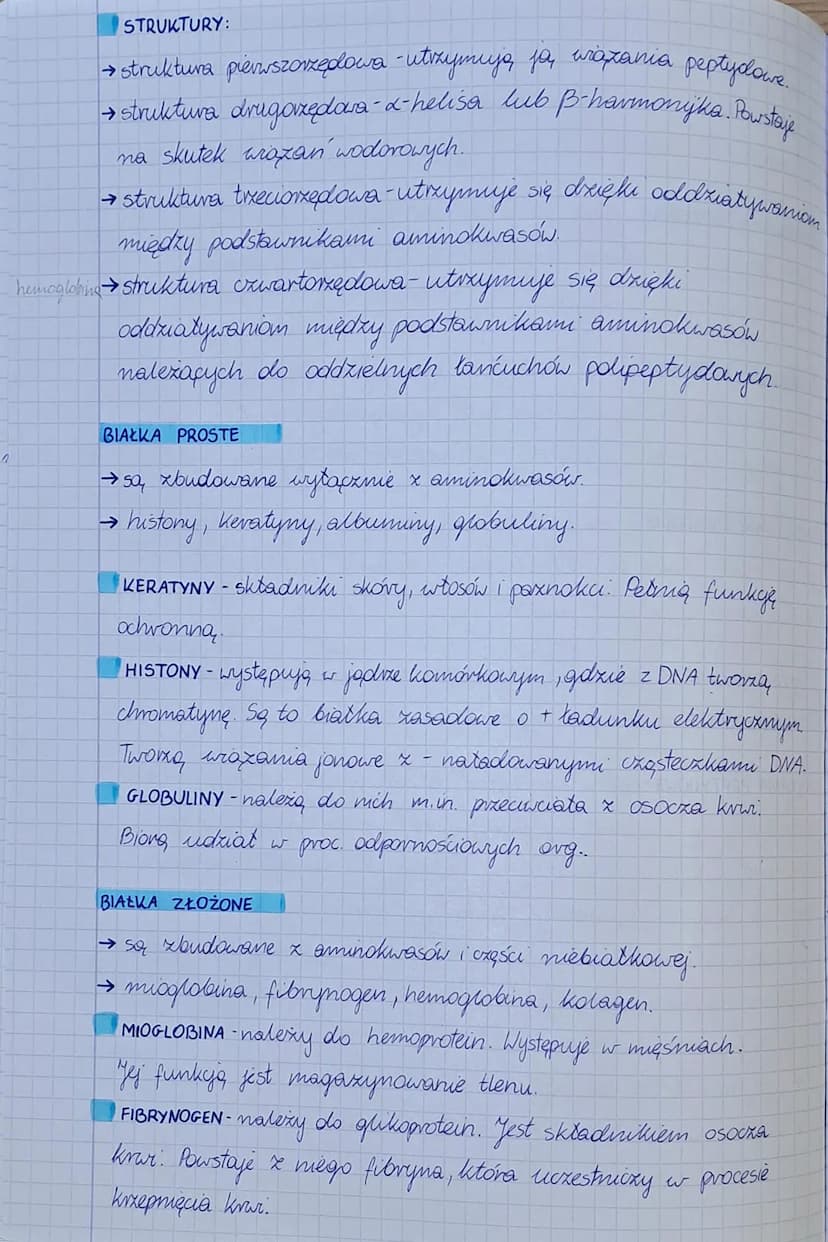 STRUKTURY:
→ struktura pierwszorzędowa - utrzymują ją wiązania peptydowe.
→ struktura drugorzędowa - α-helisa lub β-harmonijka. Powstaje
na skutek wiązań wodorowych.
→ struktura trzeciorzędowa - utrzymuje się dzięki oddziaływaniom
między podstawnikami aminokwasów.
hemoglobina → struktura czwartorzędowa - utrzymuje się dzięki
oddziaływaniom między podstawnikami aminokwasów
należących do oddzielnych łańcuchów polipeptydowych.
BIAŁKA PROSTE
→ są zbudowane wyłącznie z aminokwasów.
→ histony, keratyny, albuminy, globuliny.
KERATYNY - składniki skóry, włosów i paznokci. Pełnią funkcję
ochronną.
HISTONY - występują w jądrze komórkowym, gdzie z DNA tworzą
chromatynę. Są to białka zasadowe o + ładunku elektrycznym.
Tworzą wiązania jonowe z - naładowanymi cząsteczkami DNA.
GLOBULINY - należą do nich m.in. przeciwciała z osocza krwi.
Biorą udział w proc. odpornościowych org..
BIAŁKA ZŁOŻONE
→ są zbudowane z aminokwasów i części niebiałkowej.
→ mioglobina, fibrynogen, hemoglobina, kolagen.
MIOGLOBINA - należy do hemoprotein. Występuje w mięśniach.
Jej funkcją jest magazynowanie tlenu.
FIBRYNOGEN - należy do glikoprotein. Jest składnikiem osocza
krwi. Powstaje z niego fibryna, która uczestniczy w procesie
krzepnięcia krwi.